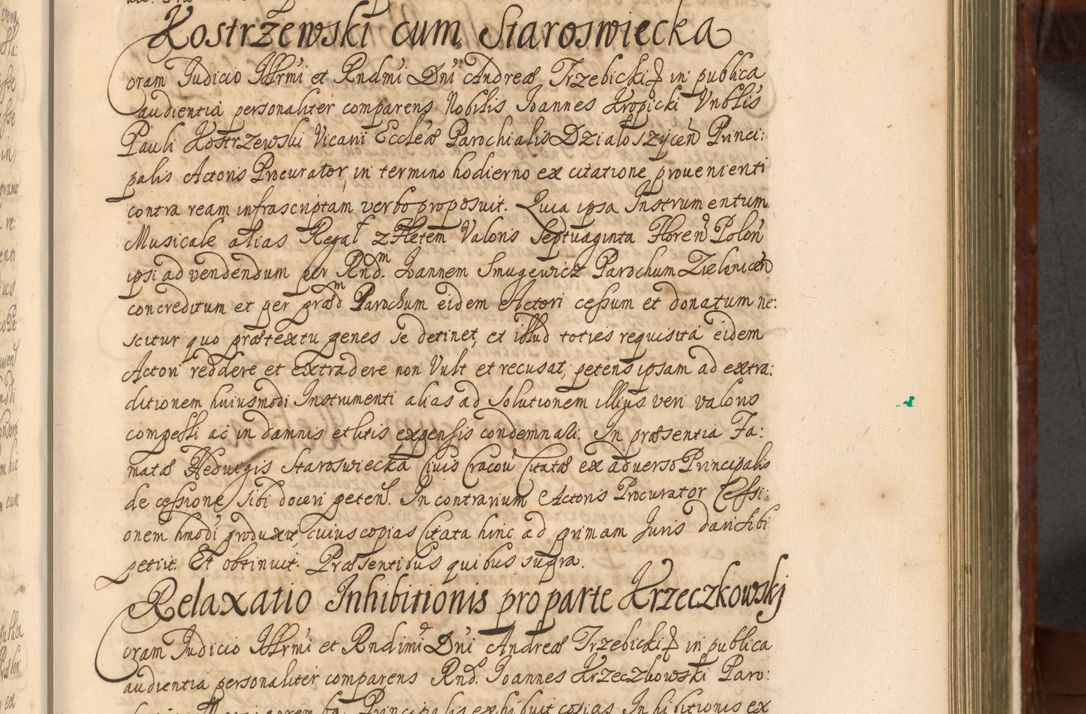 Kostrzewski cum Staroswiecka
Coram Judicio Illrmi et Rndmi Dni Andreæ Trzebicki in publica
audientia personaliter comparens Nobilis Joannes Kropicki Vnblis
Pauli Kostrzewski Vicarii Eccleæ Parochialis Działoszyceń Princi:
palis Actoris Procurator, in termino hodierno ex citatione provenienti
contra ream infrascriptam verbo proposuit. Quia ipsa Instrumentum
Musicale alias Regał z Fletem Valoris Septuaginta Floren Polon
ipsi ad vendendum per Rnd.m Joannem Smugewicz Parochum Zielenicen
concreditum et per præd.m Parochum eidem Actori cessum et donatum ne:
scitur quo prætextu penes se detinet, et illud toties requisita eidem
Actori reddere et extradere non Vult et recusat, petens ipsam ad extra:
ditionem huiusmodi Instrumenti alias ad Solutionem illius veri valoris
compelli ac in damnis et litis expensis condemnali. In præsentia Fa:
matæ Hedvigis Staroswiecka Civis Cracov Citatæ ex adverso Principalis
de cessione sibi doceri petens. In contrarium Actoris Procurator Cessi:
onem hmodi produxit cuius copias Citata hinc ad primam Juris dari sibi
petiit. Et obtinuit. Præsentibus quibus supra.
Relaxatio Inhibitionis pro parte Krzeczkowskj
Coram Judicio Illrmi et Rndimi Dni Andreæ Trzebicki in publica
audientia personaliter comparens Rnd. Joannes Krzeczkowski Paro:
Principalis exhibuit copias Inhibitionis ex